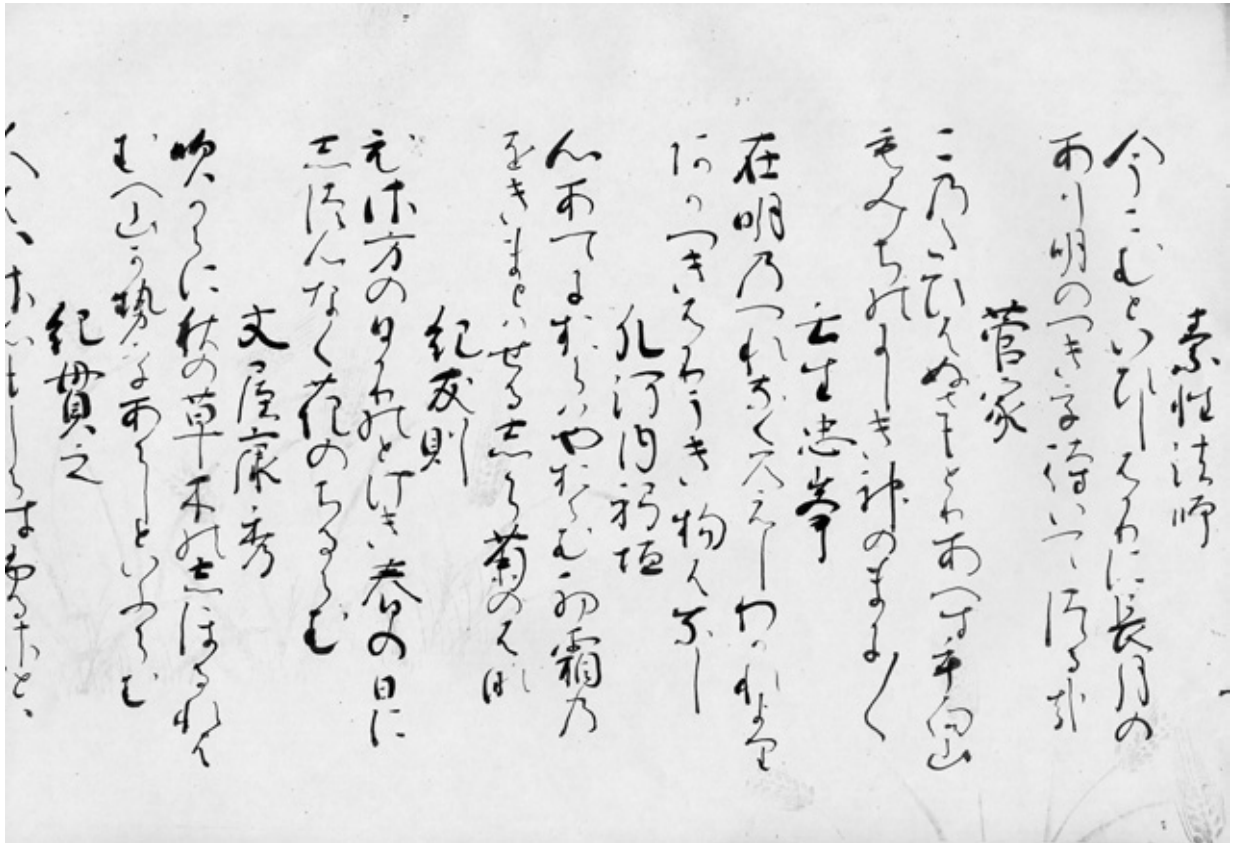 素性法師
今こむといひしはかりに長月の
あり明のつきを待いてつる哉
菅家
このたひはぬさもとりあへす手向山
もみちのにしき神のまに〱
壬生忠岑
在明乃つれなく見えしわかれより
あかつきはかりうき物はなし
凡河内躬恒
心あてにおらはやおらむ初霜乃
をきまとはせるしら菊のはな
紀友則
飛さ方の日かりのとけき春の日に
しつ心なく花のちるらむ
文屋康秀
吹からに秋の草木のしほるれは
むへ山かせをあらしといふらむ
紀貫之
人はいさ心もしらすふるさとは